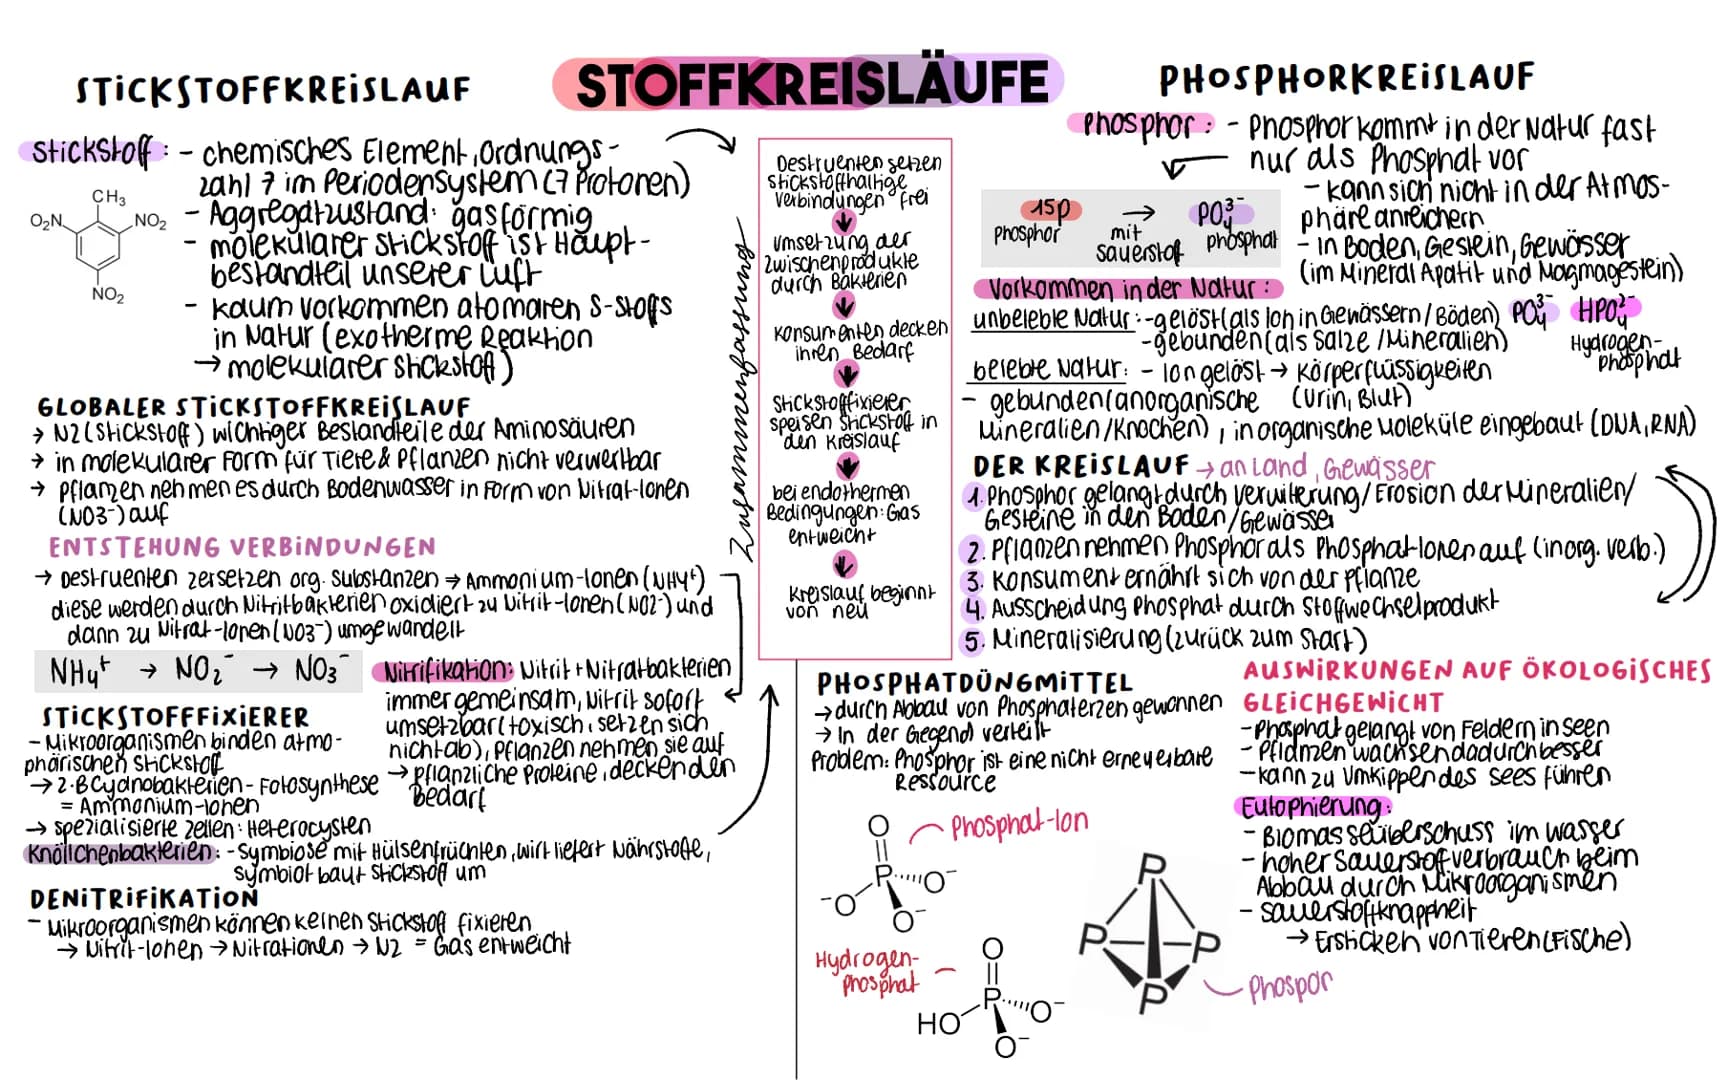 STOFFKREISLÄUFE
STiCKSTOFFKREiSLAUF
Stickstoff: - chemisches Element, Ordnungs-
zahl 7 im Periodensystem (7 Protonen)
- Aggregatzustand: gasförmig
- molekularer Stickstoff ist Haupt-
bestandteil unserer Luft
- kaum vorkommen atomaren S-stoffs
in Natur (exotherme Reaktion
→ molekularer Stickstoff)
CH3
O2N
NO2
NO2
GLOBALER STiCKSTOFFKREiSLAUF
→ N2 (Stickstoff) wichtiger Bestandteile der Aminosäuren
→ in molekularer Form für Tiere & Pflanzen nicht verwertbar
→ Pflanzen nehmen es durch Bodenwasser in Form von Nitrat-Ionen
(NO3-) auf
ENTSTEHUNG VERBiNDUNGEN
→ Destruenten zersetzen org. Substanzen → Ammonium-Ionen (NH4+)
diese werden durch Nitritbakterien oxidiert zu Nitrit-Ionen (NO2-) und
dann zu Nitrat-Ionen (NO3-) umgewandelt
NH4+ → NO2- → NO3-
Nitrifikation: Nitrit + Nitratbakterien
immer gemeinsam, Nitrit sofort
umsetzbar (toxisch, setzen sich
nicht ab), Pflanzen nehmen sie auf
→ pflanzliche Proteine, decken den
Bedarf
STiCKSTOFFFiXiERER
- Mikroorganismen binden atmo-
phärischen Stickstoff
→ z.B Cyanobakterien - Fotosynthese
= Ammonium-Ionen
→ spezialisierte Zellen: Heterocysten
Knöllchenbakterien: - Symbiose mit Hülsenfrüchten, Wirt liefert Nährstoffe,
Symbiot baut Stickstoff um
DENiTRiFiKATiON
- Mikroorganismen können keinen Stickstoff fixieren
→ Nitrit-Ionen → Nitrationen → N2 = Gas entweicht
Zusammenfassung
Destruenten setzen
stickstoffhaltige
Verbindungen frei
Umsetzung der
Zwischenprodukte
durch Bakterien
Konsumenten decken
ihren Bedarf
Stickstoffixierer
speisen Stickstoff in
den Kreislauf
bei endothermen
Bedingungen: Gas
entweicht
Kreislauf beginnt
von neu
PHOSPHORKREiSLAUF
Phosphor: - Phosphor kommt in der Natur fast
nur als Phosphat vor
- kann sich nicht in der Atmos-
phäre anreichern
- in Boden, Gestein, Gewässer
(im Mineral Apatit und Magmagestein)
15P → PO4 3-
Phosphor mit Sauerstof Phosphat
Vorkommen in der Natur:
unbelebte Natur: - gelöst (als Ion in Gewässern / Böden) PO4 3- HPO4 2-
- gebunden (als Salze / Mineralien) Hydrogen-
phosphat
belebte Natur: - Ion gelöst → Körperflüssigkeiten
(Urin, Blut)
- gebunden (anorganische
Mineralien / Knochen), in organische Moleküle eingebaut (DNA, RNA)
DER KREiSLAUF → an Land, Gewässer
1. Phosphor gelangt durch Verwitterung / Erosion der Mineralien /
Gesteine in den Boden / Gewässer
2. Pflanzen nehmen Phosphor als Phosphat-Ionen auf (inorg. Verb.)
3. Konsument ernährt sich von der Pflanze
4. Ausscheidung Phosphat durch Stoffwechselprodukt
5. Mineralisierung (zurück zum Start)
PHOSPHATDÜNGMiTTEL
→ durch Abbau von Phosphaterzen gewonnen
→ In der Gegend verteilt
Problem: Phosphor ist eine nicht erneuerbare
Ressource
Phosphat-Ion
O
P
-O
O-
O-
Hydrogen-
phosphat
O
P
HO
O-
O-
P
P
P
P
Phospor
AUSWiRKUNGEN AUF ÖKOLOGiSCHES
GLEiCHGEWiCHT
- Phosphat gelangt von Feldern in Seen
- Pflanzen wachsen dadurch besser
- kann zu Umkippen des Sees führen
Eutophierung:
- Biomasseüberschuss im Wasser
- hoher Sauerstoffverbrauch beim
Abbau durch Mikroorganismen
- Sauerstoffknappheit
→ Ersticken von Tieren (Fische)